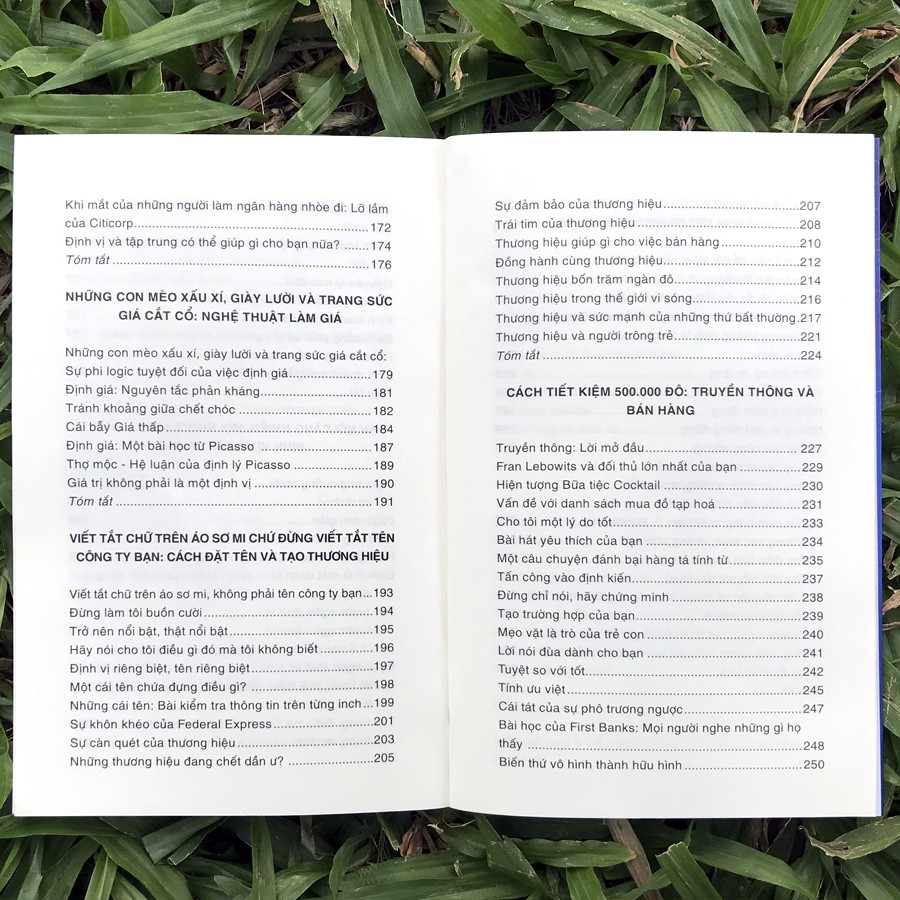 Khi mắt của những người làm ngân hàng nhòe đi: Lỡ lầm
của Citicorp.................................................................172
Định vị và tập trung có thể giúp gì cho bạn nữa? ......174
Tóm tắt .....................................................................176
NHỮNG CON MÈO XẤU XÍ, GIÀY LƯỜI VÀ TRANG SỨC
GIÁ CẮT CỔ: NGHỆ THUẬT LÀM GIÁ
Những con mèo xấu xí, giày lười và trang sức giá cắt cổ:
Sự phi logic tuyệt đối của việc định giá.....................179
Định giá: Nguyên tắc phản kháng............................181
Tránh khoảng giữa chết chóc ...................................182
Cái bẫy Giá thấp .......................................................184
Định giá: Một bài học từ Picasso .............................187
Thợ mộc - Hệ luận của định lý Picasso ....................189
Giá trị không phải là một định vị ...............................190
Tóm tắt .....................................................................191
VIẾT TẮT CHỮ TRÊN ÁO SƠ MI CHỨ ĐỪNG VIẾT TẮT TÊN
CÔNG TY BẠN: CÁCH ĐẶT TÊN VÀ TẠO THƯƠNG HIỆU
Viết tắt chữ trên áo sơ mi, không phải tên công ty bạn...193
Đừng làm tôi buồn cười............................................194
Trở nên nổi bật, thật nổi bật......................................195
Hãy nói cho tôi điều gì đó mà tôi không biết ............196
Định vị riêng biệt, tên riêng biệt................................197
Một cái tên chứa đựng điều gì? ................................198
Những cái tên: Bài kiểm tra thông tin trên từng inch...199
Sự khôn khéo của Federal Express..........................201
Sự càn quét của thương hiệu...................................203
Những thương hiệu đang chết dần ư? .....................205
Sự đảm bảo của thương hiệu...................................207
Trái tim của thương hiệu ..........................................208
Thương hiệu giúp gì cho việc bán hàng ...................210
Đồng hành cùng thương hiệu...................................212
Thương hiệu bốn trăm ngàn đô................................214
Thương hiệu trong thế giới vi sóng...........................216
Thương hiệu và sức mạnh của những thứ bất thường.217
Thương hiệu và người trông trẻ................................221
Tóm tắt .....................................................................224
CÁCH TIẾT KIỆM 500.000 ĐÔ: TRUYỀN THÔNG VÀ
BÁN HÀNG
Truyền thông: Lời mở đầu........................................ 227
Fran Lebowits và đối thủ lớn nhất của bạn ...............229
Hiện tượng Bữa tiệc Cocktail ....................................230
Vấn đề với danh sách mua đồ tạp hoá .....................231
Cho tôi một lý do tốt..................................................233
Bài hát yêu thích của bạn .........................................234
Một câu chuyện đánh bại hàng tá tính từ..................235
Tấn công vào định kiến.............................................237
Đừng chỉ nói, hãy chứng minh .................................238
Tạo trường hợp của bạn...........................................239
Mẹo vặt là trò của trẻ con .........................................240
Lời nói đùa dành cho bạn .........................................241
Tuyệt so với tốt..........................................................242
Tính ưu việt...............................................................245
Cái tát của sự phô trương ngược..............................247
Bài học của First Banks: Mọi người nghe những gì họ
thấy ..........................................................................248
Biến thứ vô hình thành hữu hình ..............................250